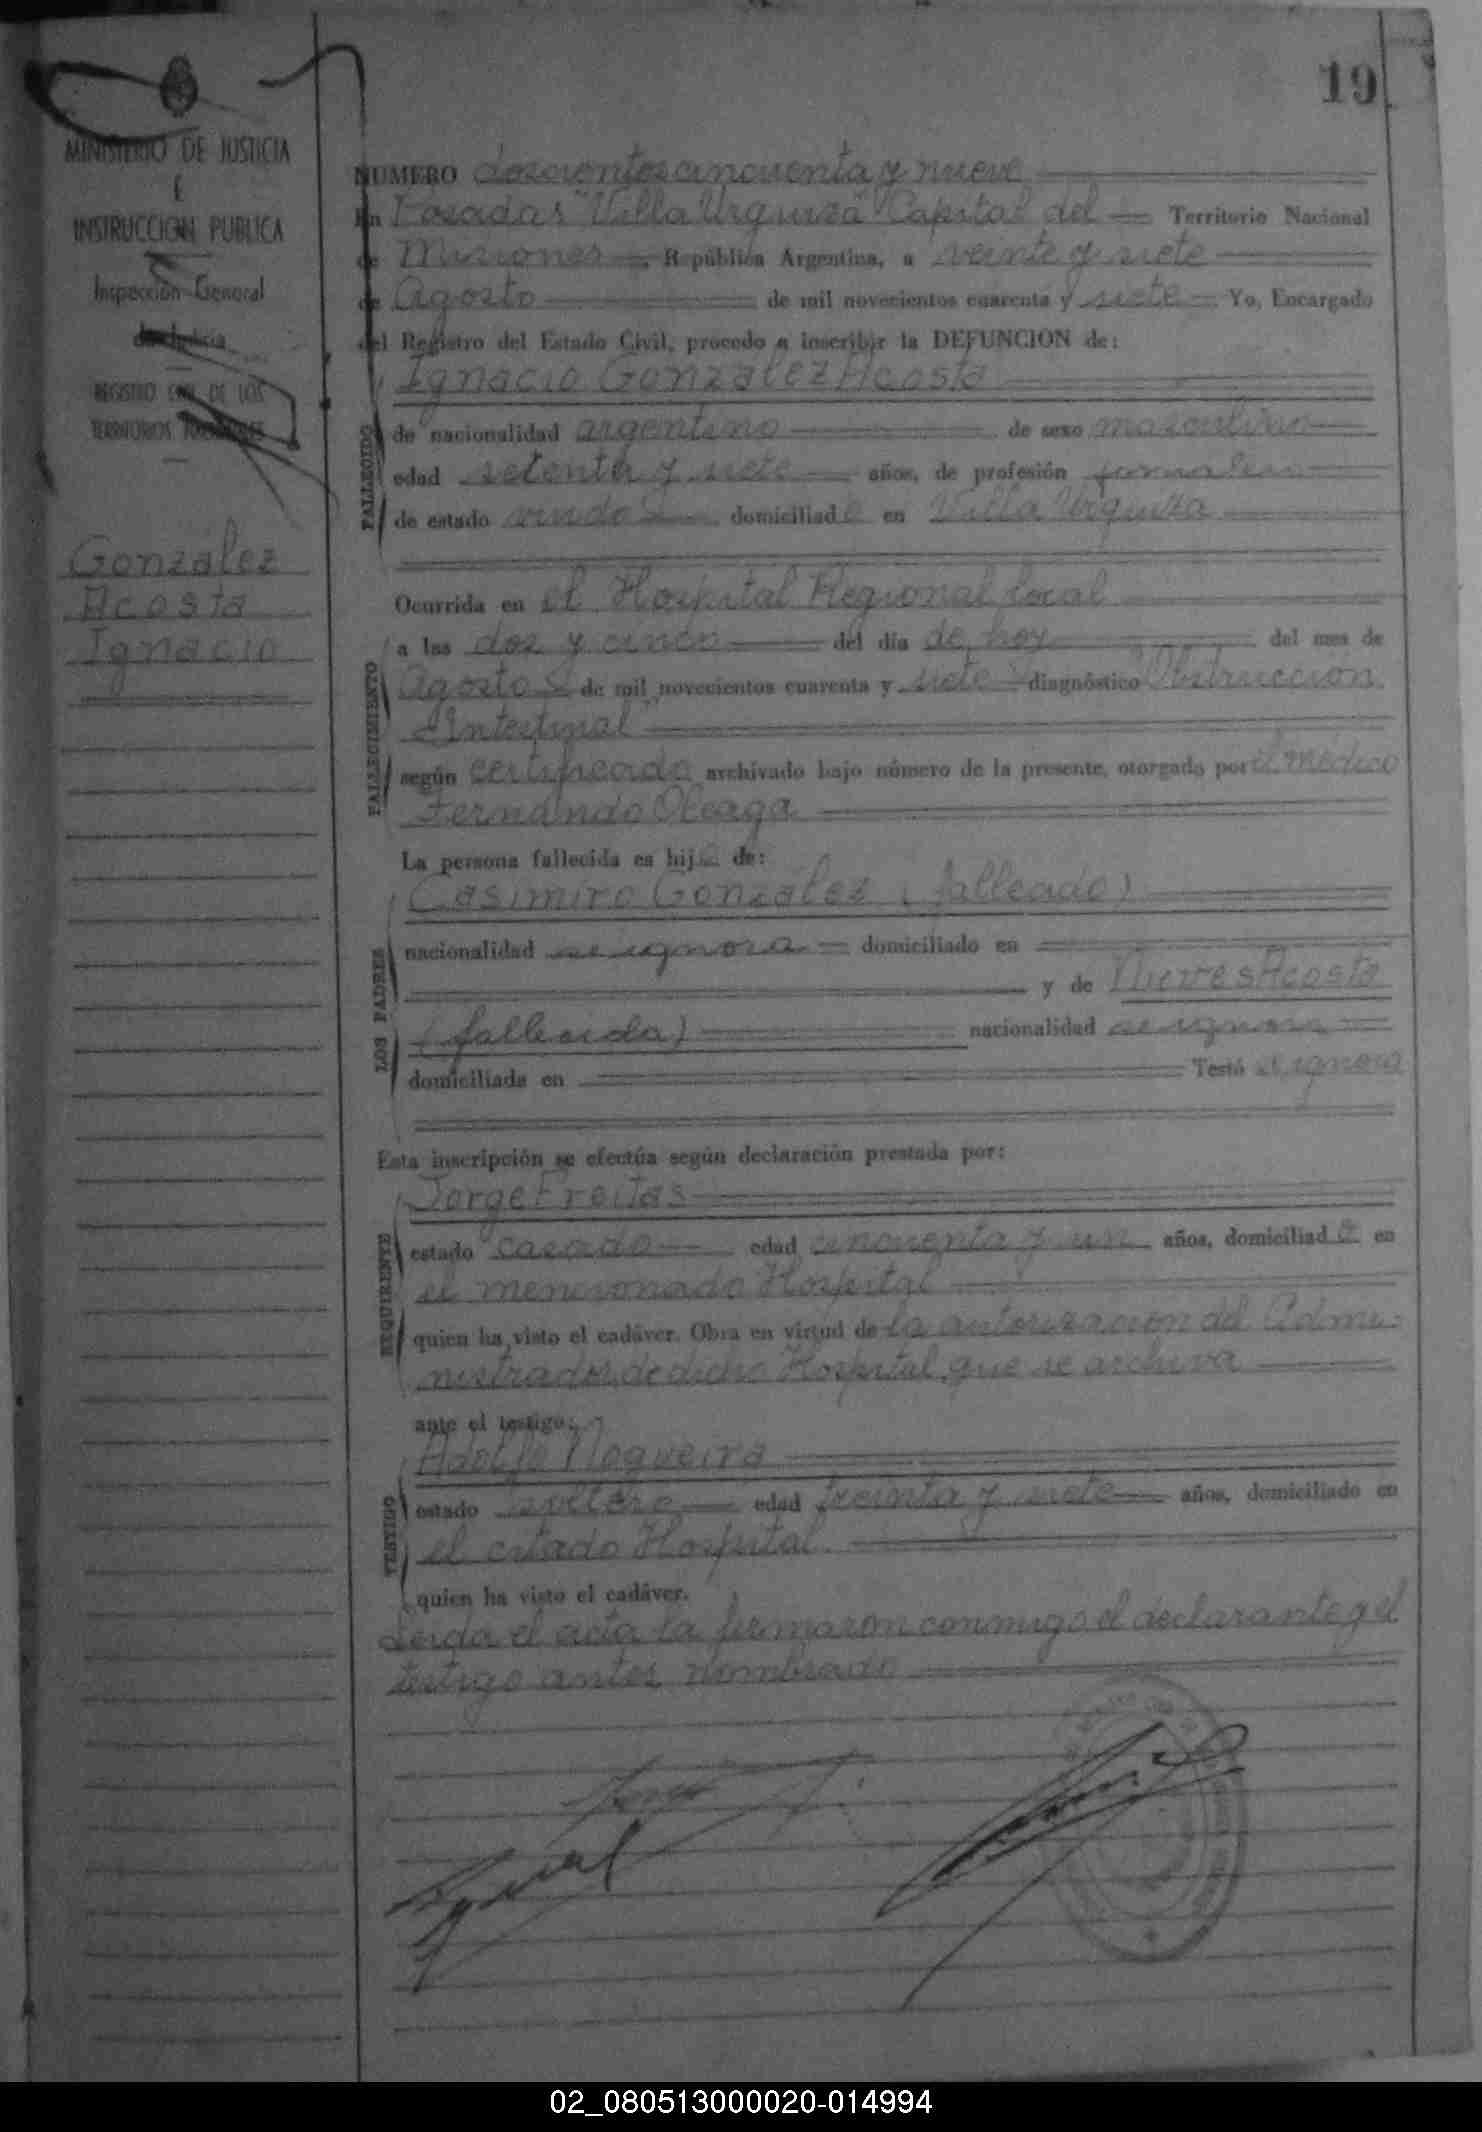 19
MINISTERIO DE JUSTICIA
E
INSTRUCCION PUBLICA
Inspección General
de Justicia
REGISTRO CIVIL DE LOS
TERRITORIOS NACIONALES
Gonzalez
Acosta
Ignacio
NUMERO doscientos cincuenta y nueve
En Posadas "Villa Urquiza" Capital del Territorio Nacional
de Misiones República Argentina, a veinte y siete
de Agosto de mil novecientos cuarenta y siete Yo, Encargado
del Registro del Estado Civil, procedo a inscribir la DEFUNCION de:
Ignacio Gonzalez Acosta
FALLECIDO
de nacionalidad argentino de sexo masculino
edad setenta y siete años, de profesión jornalero
de estado viudo domiciliado en Villa Urquiza
Ocurrida en el Hospital Regional local
FALLECIMIENTO
a las dos y cinco del día de hoy del mes de
Agosto de mil novecientos cuarenta y siete diagnóstico "Obstrucción
Intestinal"
según certificado archivado bajo número de la presente, otorgado por el médico
Fernando Oleaga
La persona fallecida es hijo de:
LOS PADRES
Casimiro Gonzalez (fallecido)
nacionalidad se ignora domiciliado en
y de Nieves Acosta
(fallecida) nacionalidad se ignora
domiciliada en Testó se ignora
Esta inscripción se efectúa según declaración prestada por:
REQUIRENTE
Jorge Freitas
estado casado edad cincuenta y un años, domiciliado en
el mencionado Hospital
quien ha visto el cadáver. Obra en virtud de la autorización del Admi-
nistrador de dicho Hospital, que se archiva
ante el testigo:
TESTIGO
Adolfo Nogueira
estado soltero edad treinta y siete años, domiciliado en
el citado Hospital.
quien ha visto el cadáver.
Leida el acta la firmaron conmigo el declarante y el
testigo antes nombrado
02_080513000020-014994